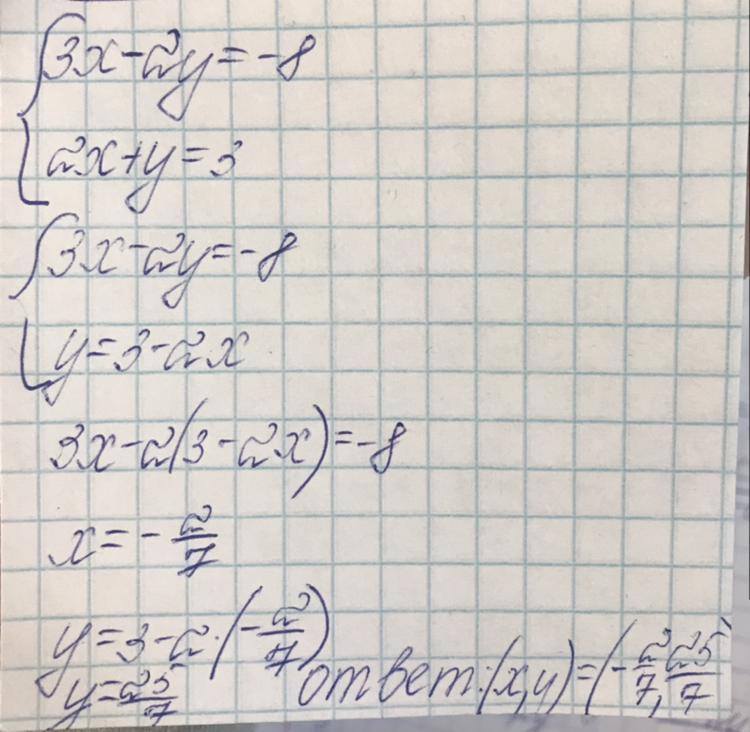 {3x-2y=-8
2x+y=3
{3x-2y=-8
y=3-2x
3x-2(3-2x)=-8
x=-2/7
y=3-2·(-2/7)
y=25/7 ответ:(x,y)=(-2/7,25/7)